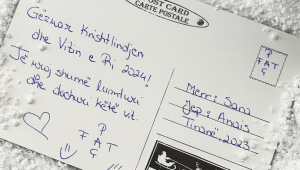 POST CARD
CARTE POSTALE
Gëzuar Krishtlindjen
dhe Vitin e Ri 2024!
Ju uroj shumë lumturi
dhe dashuri këtë vit.
P
F A T
Ç
P
F A T
Ç
Merr: Sara
Jep: Anais
Tiranë, 2023